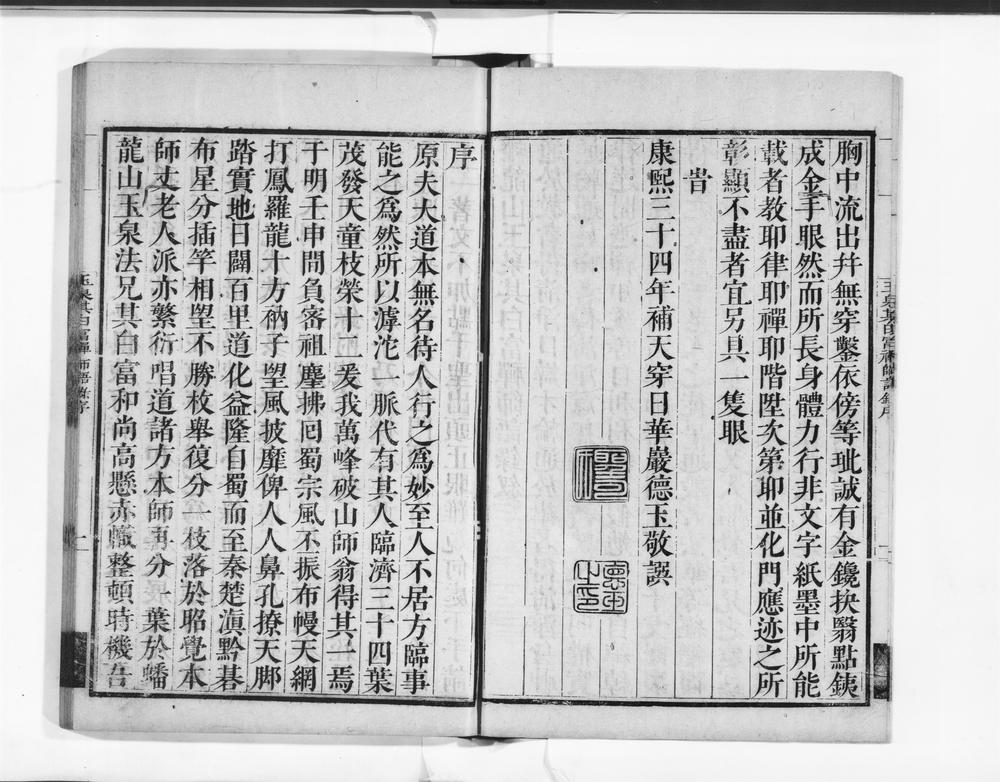 胸中流出幷無穿鑿依傍等玼誠有金鎞抉翳點鐵
成金手眼然而所長身體力行非文字紙墨中所能
載者教耶律耶禪耶階陞次第耶並化門應迹之所
彰顯不盡者宜另具一隻眼
旹
康熙三十四年補天穿日華嚴德玉敬譔
序
原夫大道本無名待人行之爲妙至人不居方臨事
能之爲然所以滹沱一脈代有其人臨濟三十四葉
茂發天童枝榮十二爰我萬峰破山師翁得其一焉
于明壬申間負密祖塵拂囘蜀宗風丕振布幔天網
打鳳羅龍十方衲子朢風披靡俾人人鼻孔撩天脚
踏實地日闢百里道化益隆自蜀而至秦楚滇黔碁
布星分插竿相朢不勝枚舉復分一枝落於昭覺本
師丈老人派亦繁衍唱道諸方本師再分一葉於蟠
龍山玉泉法兄其白富和尚高懸赤幟整頓時機吾
玉泉其白富禪師語錄序